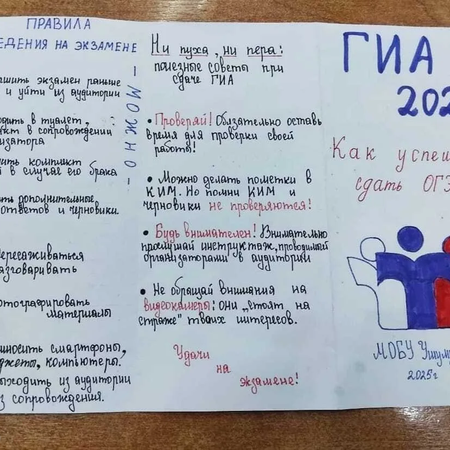 ПРАВИЛА
ВЕДЕНИЯ НА ЭКЗАМЕНЕ
экзамен раньше
и уйти из аудитории
в туалет,
в сопровождении
комплект
в случае его брака
дополнительные
ответов и черновики
- МОЖНО -
пересаживаться
разговаривать
фотографировать
материалы
смартфоны,
компьютеры.
выходить из аудитории
сопровождения.
Ни пуха, ни пера:
полезные советы при
сдаче ГИА
• Проверяй! Обязательно оставь
время для проверки своей
работы!
• Можно делать пометки в
КИМ. Но помни КИМ и
черновики не проверяются!
• Будь внимателен! Внимательно
прослушай инструктаж, проводимый
организаторами в аудитории
• Не обращай внимания на
видеокамеры: они „стоят на
страже" твоих интересов.
Удачи
на
экзамене!
ГИА
202
Как успеш
сдать ОГЭ
МОБУ Ушум
2025г